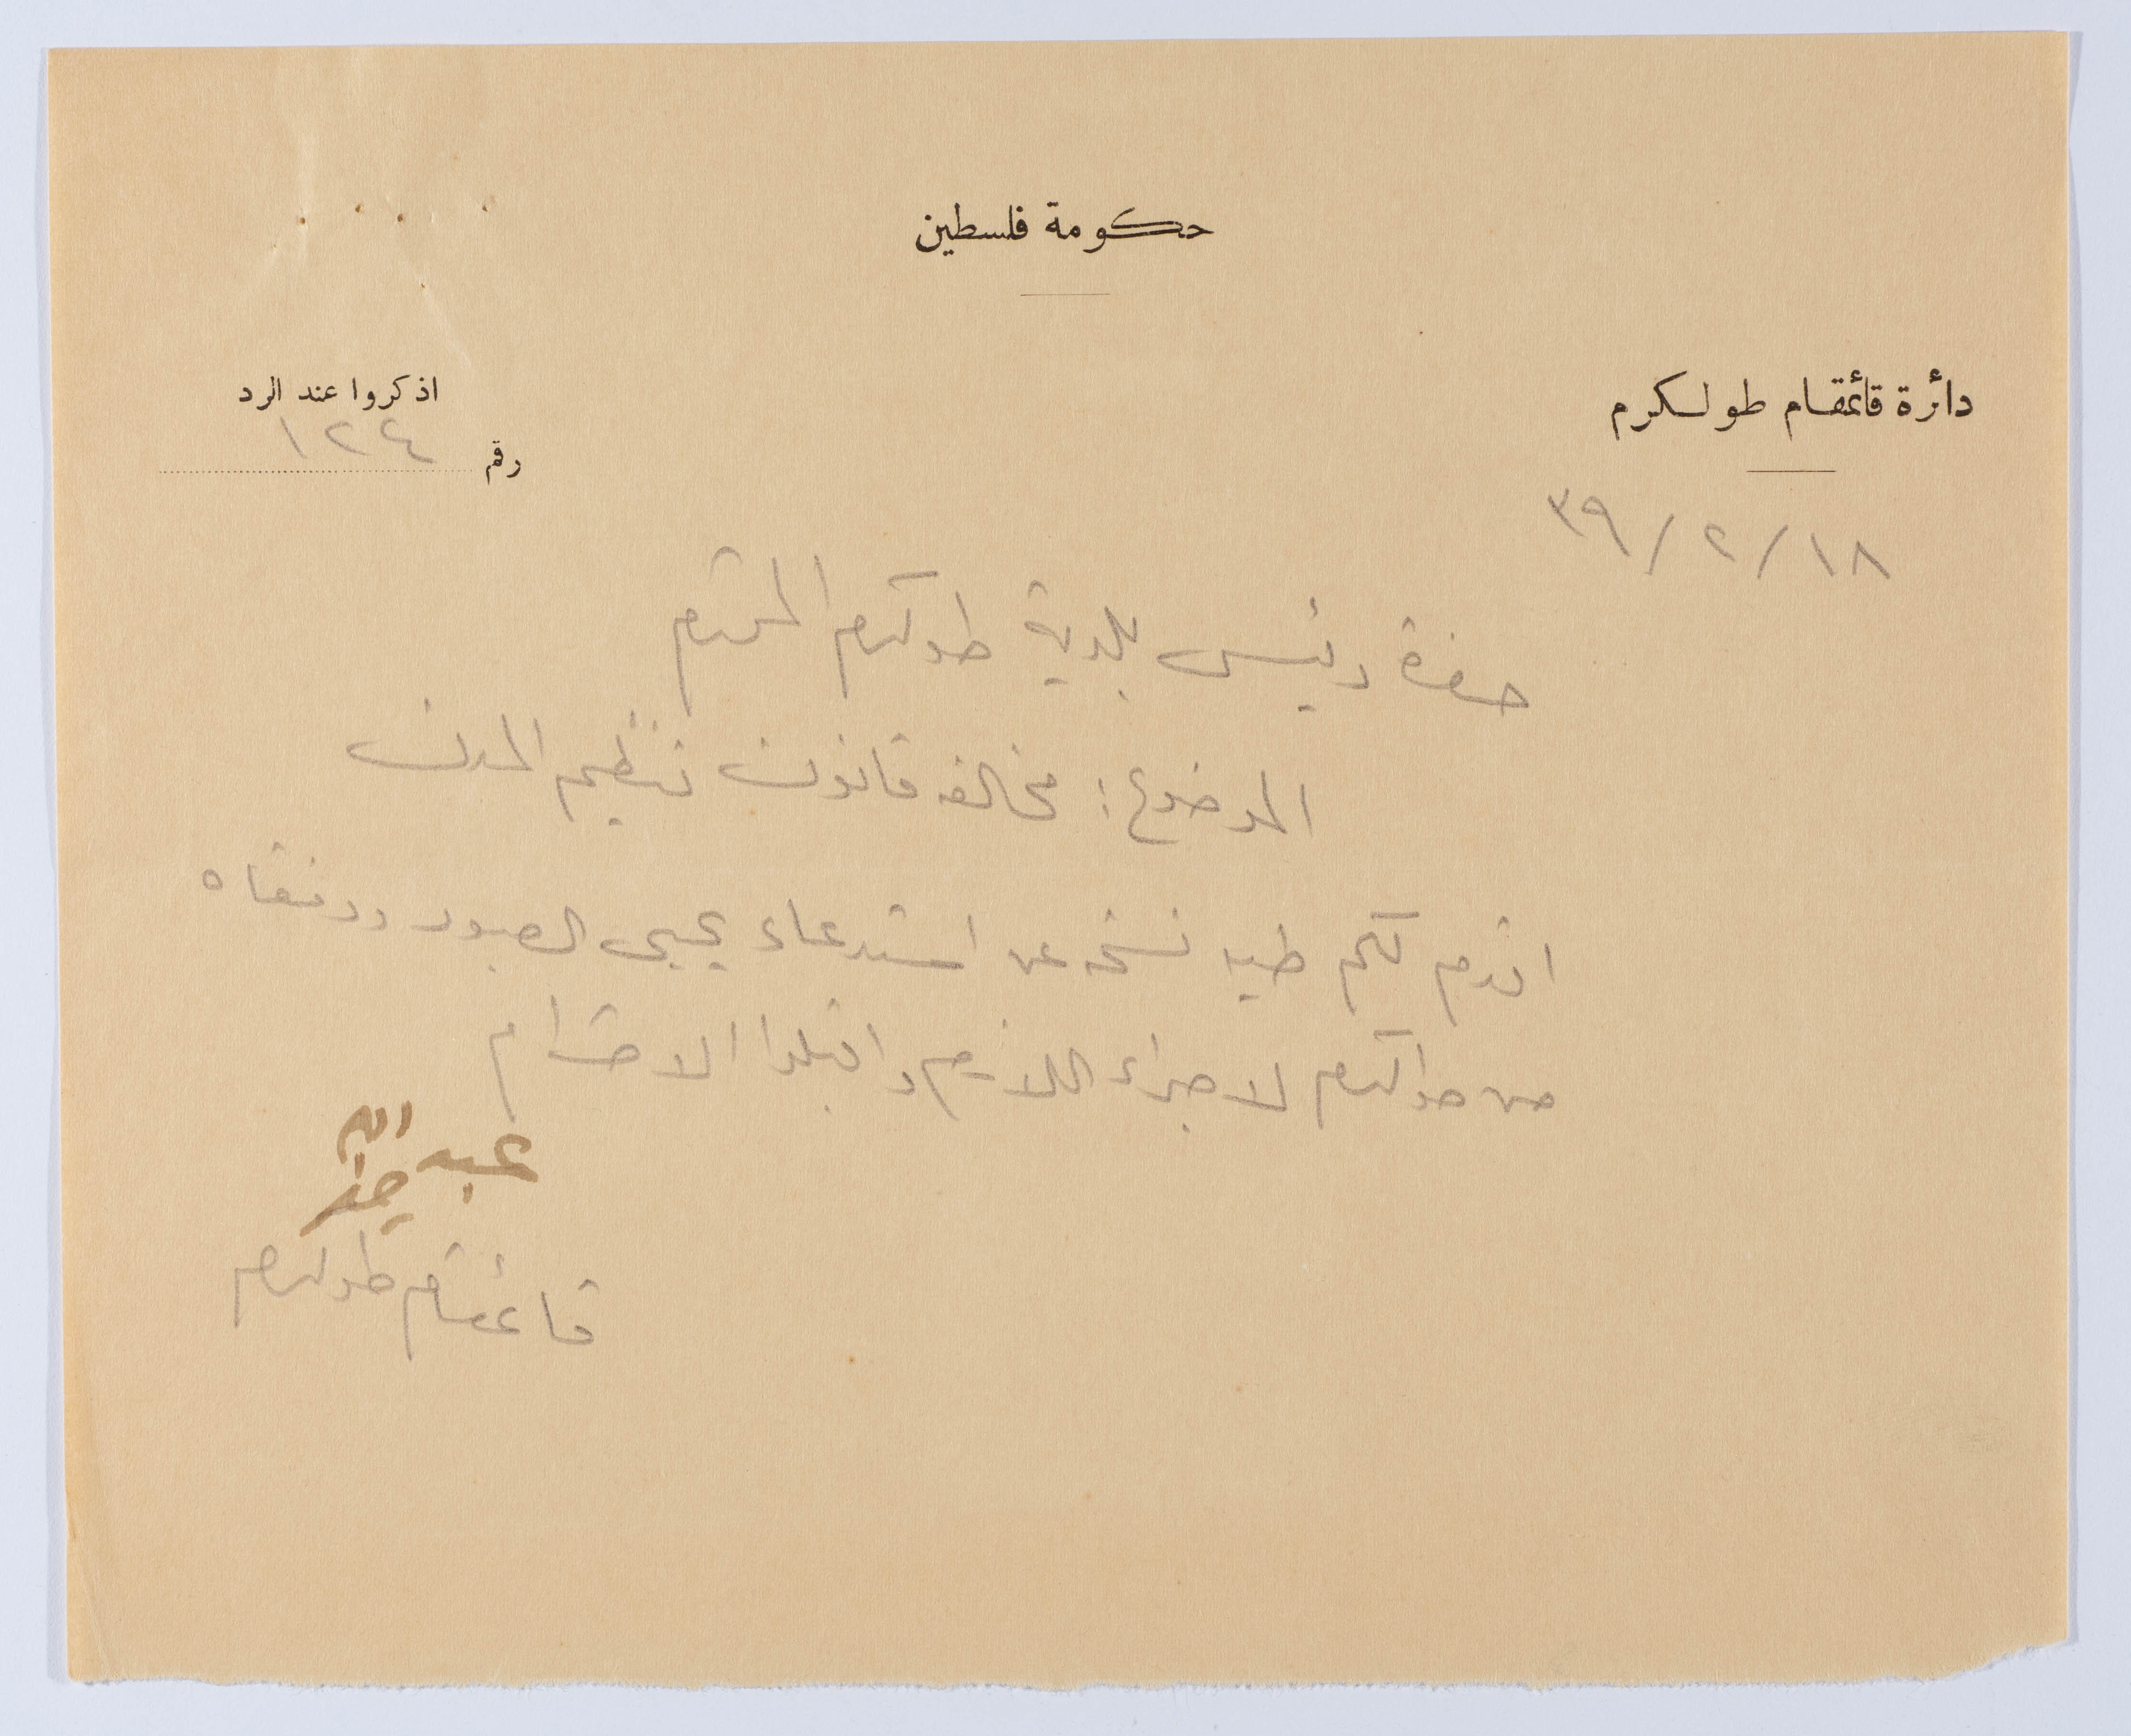 حكومة فلسطين
دائرة قائمقام طولكرم
اذكروا عند الرد
رقم ١٢٢٤
١٨/٢/٣٩
حضرة رئيس بلدية طولكرم المحترم
الموضوع: مخالفه قانون تنظيم المدن
اقدم لكم طيه نسخه عن استدعاء يحيى العبود ورفقاه
من طولكرم لاجراء اللازم واقبلوا الاحترام
عبد الله
قائمقام طولكرم